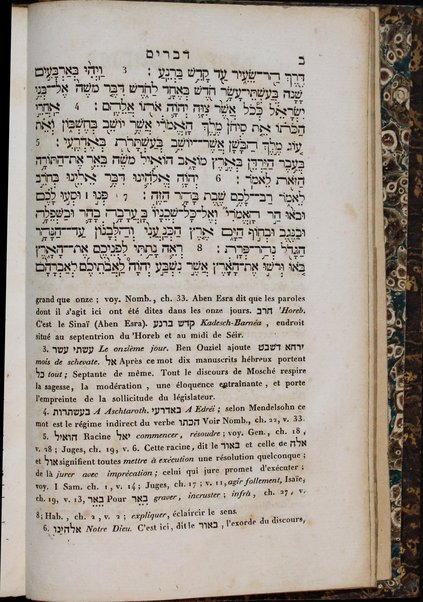 דברים
ב
דֶּ֥רֶךְ הַר־שֵׂעִ֑יר עַ֖ד קָדֵ֥שׁ בַּרְנֵֽעַ׃ 3 וַיְהִי֙ בְּאַרְבָּעִ֣ים
שָׁנָ֔ה בְּעַשְׁתֵּֽי־עָשָׂ֥ר חֹ֖דֶשׁ בְּאֶחָ֣ד לַחֹ֑דֶשׁ דִּבֶּ֤ר מֹשֶׁה֙ אֶל־בְּנֵ֣י
יִשְׂרָאֵ֔ל כְּ֠כֹל אֲשֶׁ֨ר צִוָּ֧ה יְהוָ֛ה אֹת֖וֹ אֲלֵהֶֽם׃ 4 אַחֲרֵ֣י
הַכֹּת֗וֹ אֵ֚ת סִיחֹן֙ מֶ֣לֶךְ הָֽאֱמֹרִ֔י אֲשֶׁ֥ר יוֹשֵׁ֖ב בְּחֶשְׁבּ֑וֹן וְאֵ֗ת
ע֚וֹג מֶ֣לֶךְ הַבָּשָׁ֔ן אֲשֶׁר־יוֹשֵׁ֥ב בְּעַשְׁתָּרֹ֖ת בְּאֶדְרֶֽעִי׃ 5
בְּעֵ֥בֶר הַיַּרְדֵּ֖ן בְּאֶ֣רֶץ מוֹאָ֑ב הוֹאִ֣יל מֹשֶׁ֔ה בֵּאֵ֛ר אֶת־הַתּוֹרָ֥ה
הַזֹּ֖את לֵאמֹֽר׃ 6 יְהוָ֧ה אֱלֹהֵ֛ינוּ דִּבֶּ֥ר אֵלֵ֖ינוּ בְּחֹרֵ֣ב
לֵאמֹ֑ר רַב־לָכֶ֥ם שֶׁ֖בֶת בָּהָ֥ר הַזֶּֽה׃ 7 פְּנ֣וּ ׀ וּסְע֣וּ לָכֶ֗ם
וּבֹ֨אוּ הַ֥ר הָֽאֱמֹרִי֮ וְאֶל־כָּל־שְׁכֵנָיו֒ בָּעֲרָבָ֥ה בָהָ֛ר וּבַשְּׁפֵלָ֥ה
וּבַנֶּ֖גֶב וּבְח֣וֹף הַיָּ֑ם אֶ֤רֶץ הַֽכְּנַעֲנִי֙ וְהַלְּבָנ֔וֹן עַד־הַנָּהָ֥ר
הַגָּדֹ֖ל נְהַר־פְּרָֽת׃ 8 רְאֵ֛ה נָתַ֥תִּי לִפְנֵיכֶ֖ם אֶת־הָאָ֑רֶץ
בֹּ֚אוּ וּרְשׁ֣וּ אֶת־הָאָ֔רֶץ אֲשֶׁ֣ר נִשְׁבַּ֣ע יְ֠הוָה לַאֲבֹ֨תֵיכֶ֜ם לְאַבְרָהָ֨ם
grand que onze ; voy. Nomb., ch. 33. Aben Esra dit que les paroles
dont il s'agit ici ont été dites dans les onze jours. חרב 'Horeb.
C'est le Sinaï (Aben Esra). קדש ברנע Kadesch-Barnéa, endroit
situé au septentrion du 'Horeb et au midi de Séir.
3. עשתי עשר Le onzième jour. Ren Ouziel ajoute ירחא דשבט
mois de schevate. אל Après ce mot dix manuscrits hébreux portent
כל tout ; Septante de même. Tout le discours de Mosché respire
la sagesse, la modération, une éloquence entraînante, et porte
l'empreinte de la sollicitude du législateur.
4. בעשתרות A Aschtaroth. באדרעי A Edréi ; selon Mendelsohn ce
mot est le régime indirect du verbe הכתו Voir Nomb., ch. 22, v. 33.
5. הואיל Racine יאל commencer, résoudre ; voy. Gen., ch. 18,
v. 28 ; Juges, ch. 19, v. 6. Cette racine, dit le באור et celle de אלה
et אול signifient toutes mettre à exécution une résolution quelconque ;
de là jurer avec imprécation ; celui qui jure promet d'exécuter :
voy. I Sam. ch. 1, v. 14 ; Juges, ch. 17 ; v. 11, agir follement, Isaïe,
ch. 19, v. 13, בֵּאֵר Pour בָּאֵר graver, incruster ; infrà, ch. 27, v.
8 ; Hab., ch. 2, v. 2 ; expliquer, éclaircir le sens.
6. אלהינו Notre Dieu. C'est ici, dit le באור, l'exorde du discours,